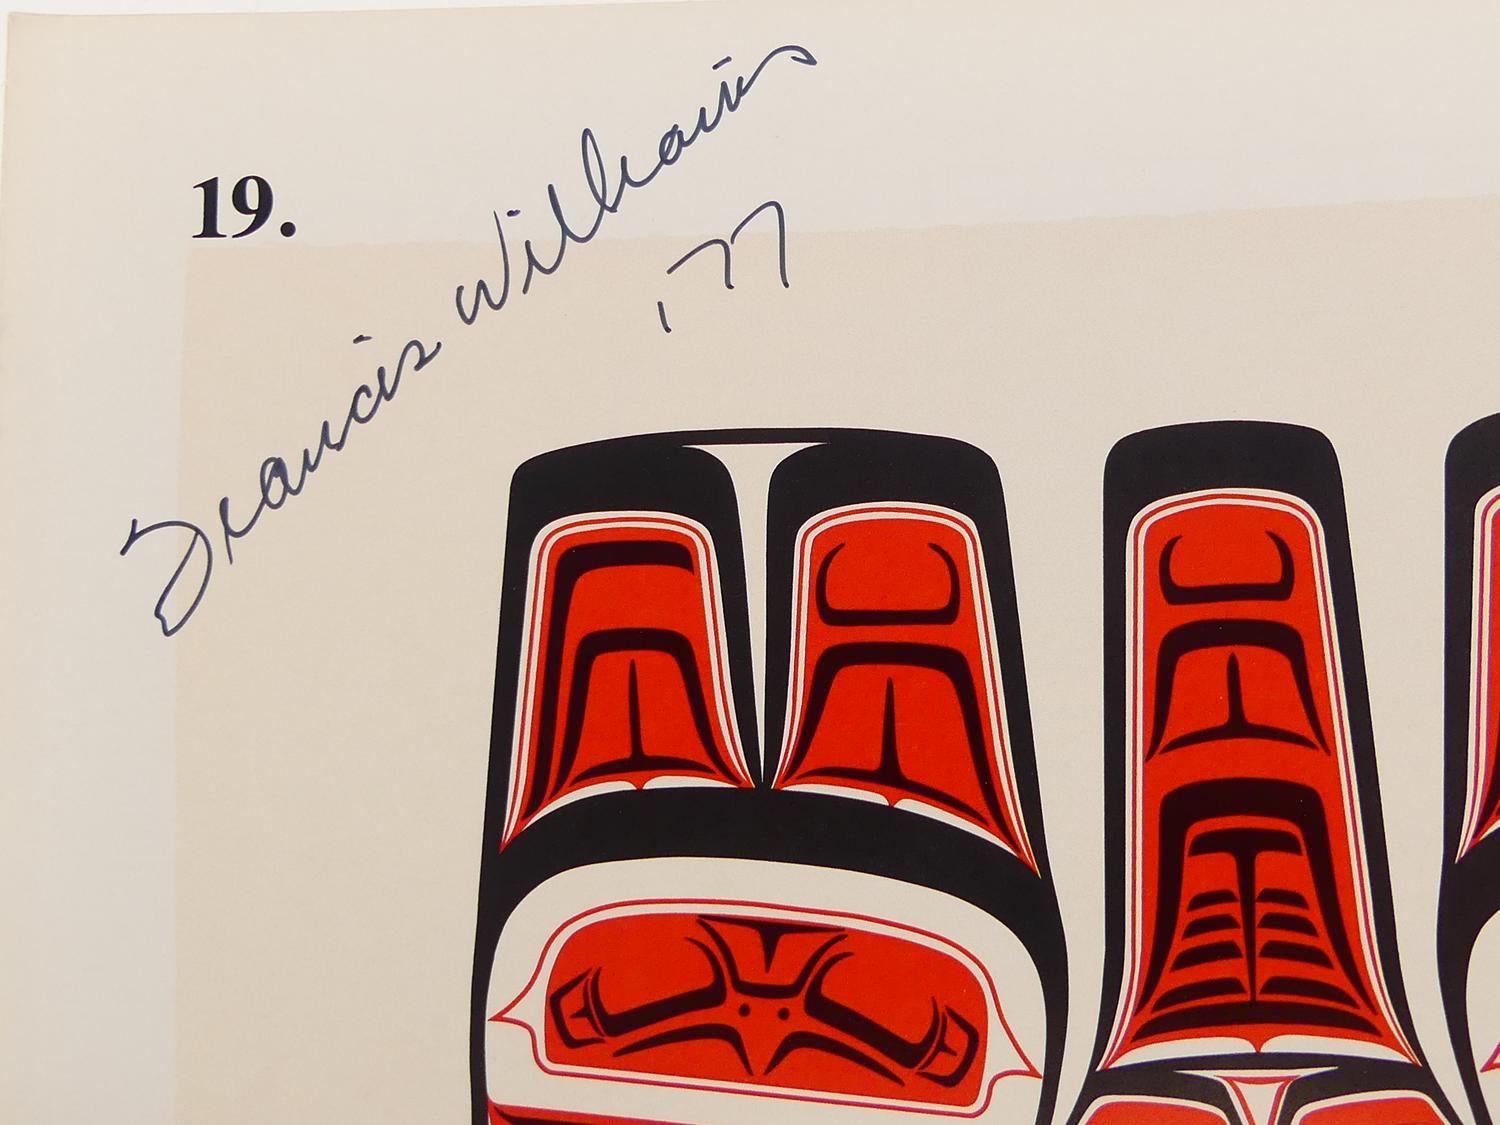 19.
Francis Williams
'77